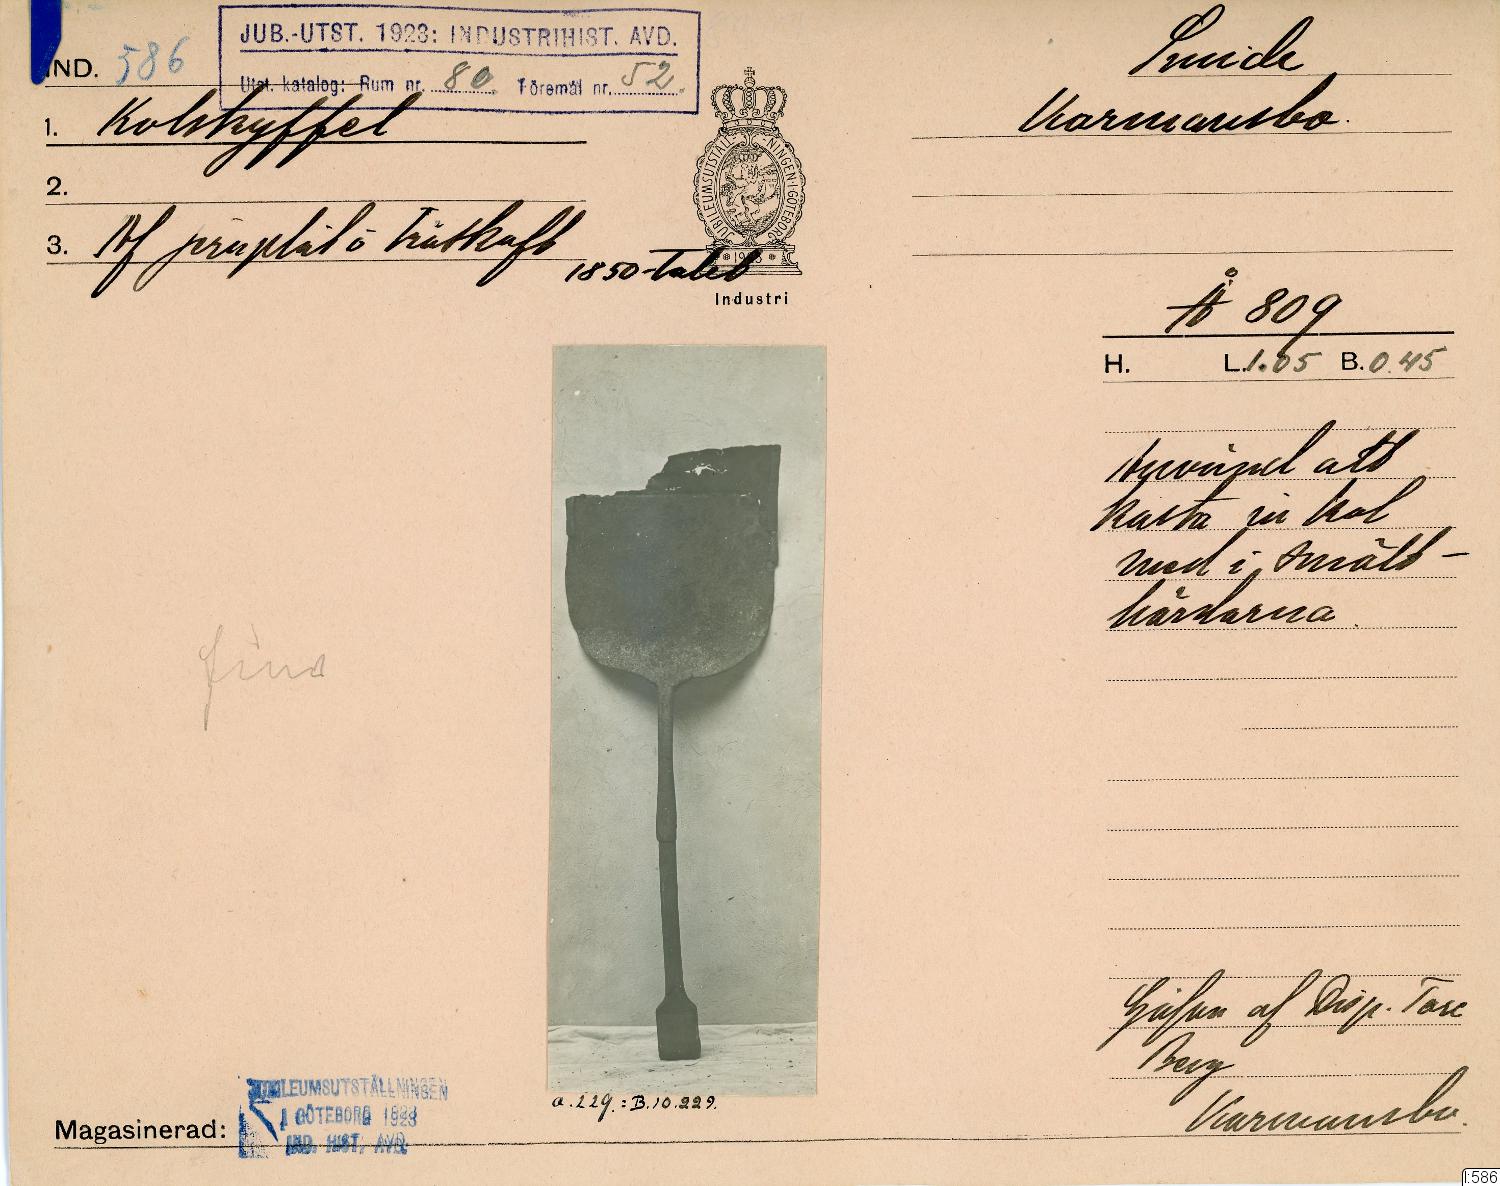 JUB.-UTST. 1923: INDUSTRIHIST. AVD.
Utst. katalog: Rum nr. 80. Föremål nr. 52.
IND. 586
1. Kolskyffel
2.
3. Af järnplåt o Träskaft
1850-talet
JUBILEUMSUTSTÄLLNINGEN I GÖTEBORG
1923
Industri
Smide
Karmansbo.
Å 809
H. L. 1.05 B. 0.45
Använd att
kasta in kol
med i smält-
härdarna.
Gåfva af Disp. Tore
Berg
Karmansbo.
a.229.:B.10.229.
Magasinerad:
JUBILEUMSUTSTÄLLNINGEN
I GÖTEBORG 1923
IND. HIST. AVD.
I:586